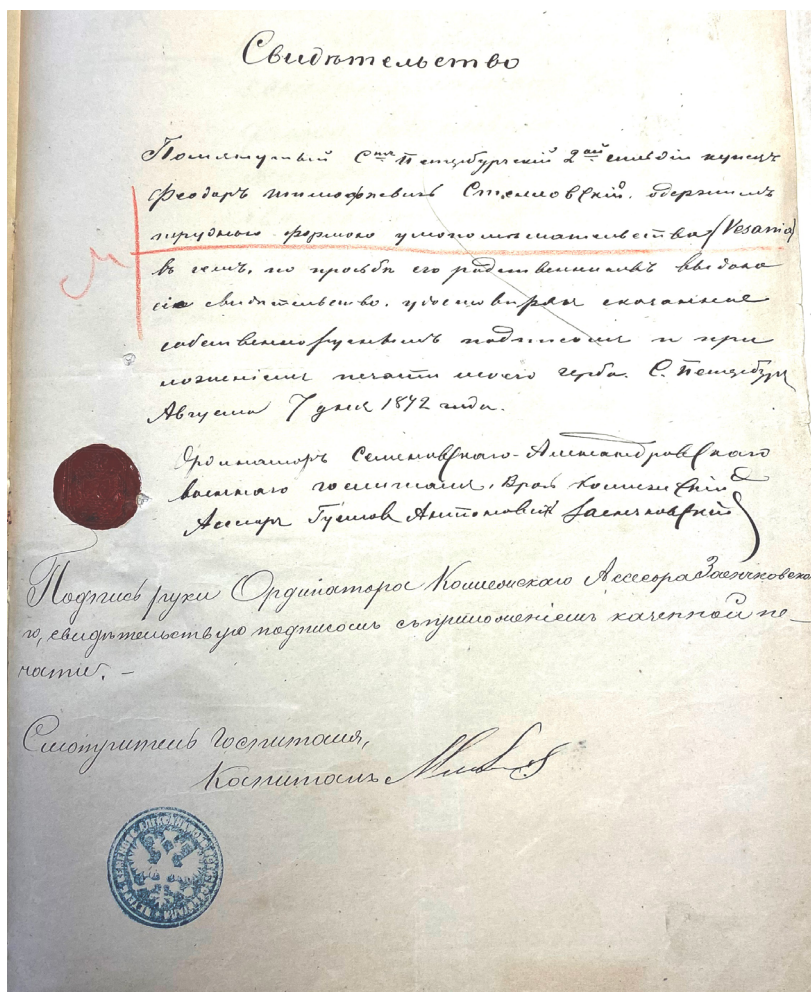 Свидѣтельство
Помянутый С<sup>нкт</sup> Петербургскій 2<sup>ой</sup> гильдіи купецъ
Феодоръ Тимофѣевичъ Стелловскій, одержимъ
формою умопомѣшательства (Vesania)
въ чемъ, по просьбѣ его родственниковъ выдано
сіе свидѣтельство, удостовѣряя сказанное
собственноручнымъ подписомъ и при
ложеніемъ печати моего герба. С. Петербургъ
Августа 7 дня 1872 года.
Ординаторъ Семеновскаго-Александровскаго
военнаго госпиталя, Врачъ Коллежскій
Асессоръ Густавъ Антоновичъ Заенчковскій
Подпись руки Ординатора Коллежскаго Ассесора Заенчковска
го, свидѣтельствую подписомъ съ приложеніемъ казенной пе-
чати. -
Смотритель Госпиталя,
Капитанъ